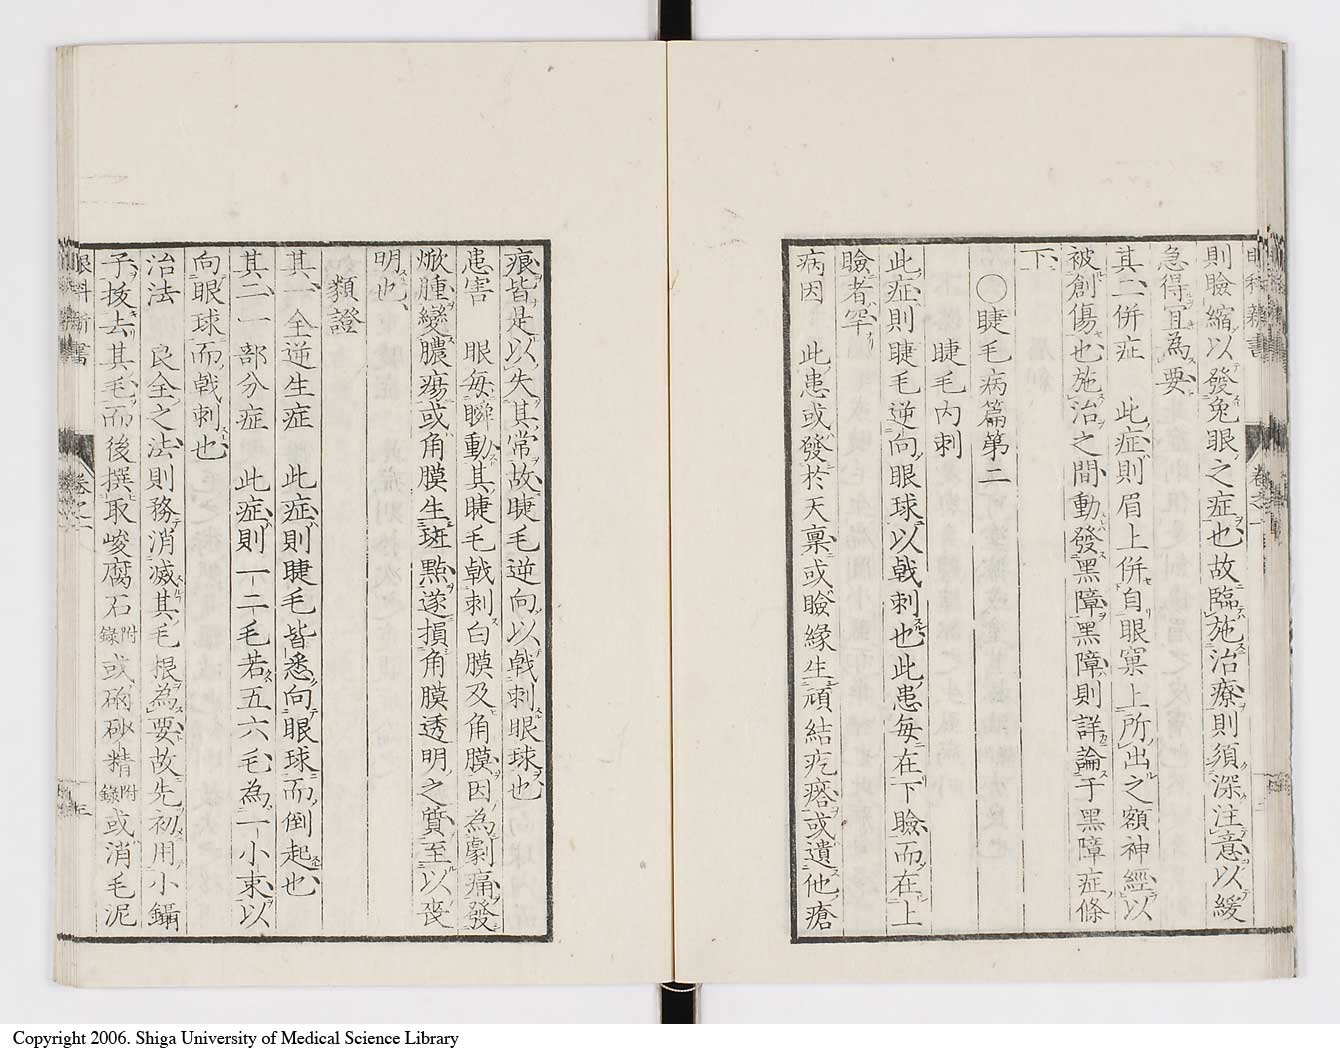 則瞼縮以發兔眼之症也故臨施治療則須深注意以緩
急得宜為要
其二併症　此症則眉上併自眼窠上所出之額神經以
被創傷也施治之間動發黑障黑障則詳論于黑障症條
下
〇睫毛病篇第二
睫毛內刺
此症則睫毛逆向眼球以戟刺也此患每在下瞼而在上
瞼者罕
病因　此患或發於天稟或瞼緣生頑結疙瘩或遺他瘡
卷之一
痕皆是以失其常故睫毛逆向以戟刺眼球也
患害　眼每瞬動其睫毛戟刺白膜及角膜因為劇痛發
焮腫變膿瘍或角膜生斑點遂損角膜透明之質至以喪
明也
類證
其一全逆生症　此症則睫毛皆悉向眼球而倒起也
其二一部分症　此症則一二毛若五六毛為一小束以
向眼球而戟刺也
治法　良全之法則務消滅其毛根為要故先初用小鑷
子拔去其毛而後撰取峻腐石附錄或硇砂精附錄或消毛泥
眼科新書
卷之一
三
Copyright 2006. Shiga University of Medical Science Library